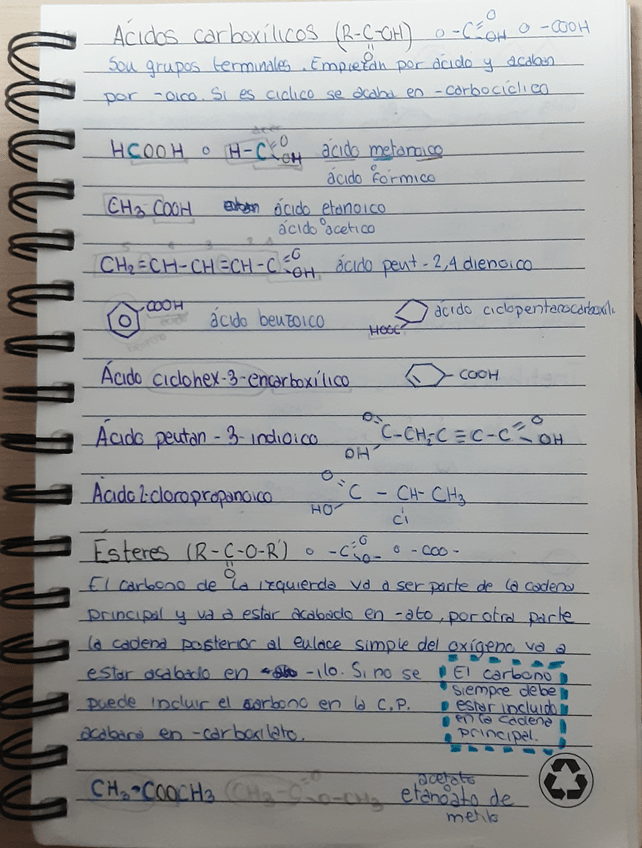 Ácidos carboxílicos (R-C-OH) o -C=O OH o -COOH
O
Son grupos terminales. Empiezan por ácido y acaban
por -oico. Si es cíclico se acaba en -carbocíclico
HCOOH o H-C=O OH ácido metanoico
ácido fórmico
CH3 COOH ácido etanoico
ácido acético
CH2=CH-CH=CH-C=O OH ácido pent-2,4 dienoico
COOH ácido benzoico HOOC ácido ciclopentanocarboxíli
Ácido ciclohex-3-encarboxílico -COOH
Ácido pentan-3-indioico O OH C-CH2C≡C-C=O OH
Ácido 2-cloropropanoico O HO C - CH-CH3
Cl
Ésteres (R-C-O-R') o -C=O O- o -COO-
O
El carbono de la izquierda va a ser parte de la cadena
principal y va a estar acabado en -ato, por otra parte
la cadena posterior al enlace simple del oxígeno va a
estar acabado en -ilo. Si no se
puede incluir el carbono en la C.P.
acabará en -carboxilato.
El carbono
siempre debe
estar incluido
en la cadena
principal.
CH3-COOCH3 CH3-C=O O-CH3 acetato
etanoato de
metilo